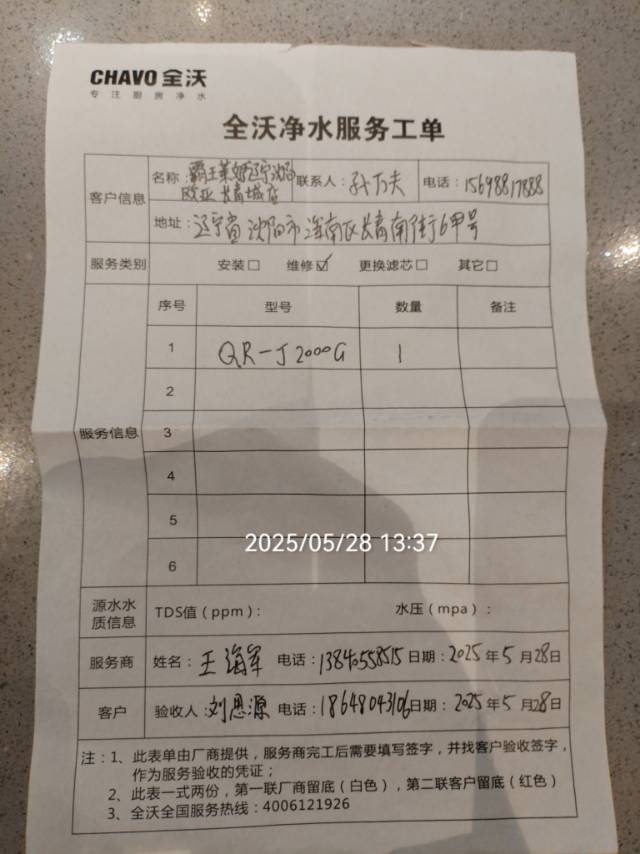 CHAVO 全沃
专注厨房净水
全沃净水服务工单
客户信息
名称：霸王茶姬辽宁沈阳
欧亚长青城店
联系人：孙万夫
电话：15698817888
地址：辽宁省沈阳市浑南区长青南街6甲号
服务类别 安装□ 维修☑ 更换滤芯□ 其它□
服务信息
序号 型号 数量 备注
1 QR-J2000G 1
2
3
4
5
6
2025/05/28 13:37
源水水质信息 TDS值（ppm）： 水压（mpa）：
服务商 姓名：王海军 电话：13840558515 日期：2025年5月28日
客户 验收人：刘恩源 电话：18648043106 日期：2025年5月28日
注：1、此表单由厂商提供，服务商完工后需要填写签字，并找客户验收签字，
作为服务验收的凭证；
2、此表一式两份，第一联厂商留底（白色），第二联客户留底（红色）
3、全沃全国服务热线：4006121926